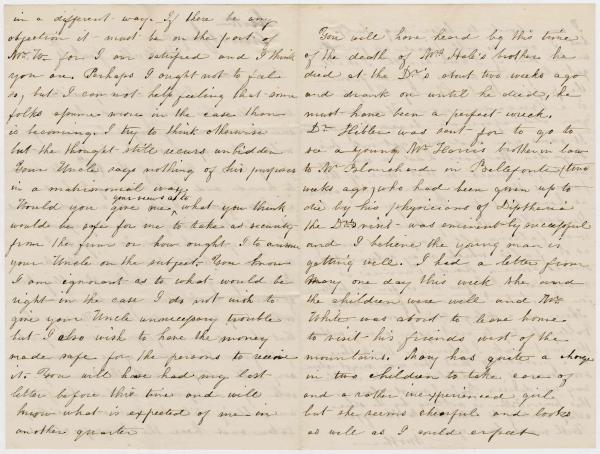 in a different way. If there be any
objection it must be on the part of
Mr. W. for I am satisfied and I think
you are. Perhaps I ought not to feel
so, but I can not help feeling that some
folks more in the case than
is becoming. I try to think otherwise
but the thought still occurs unbidden
Your Uncle says nothing of his purposes
in a matrimonial way.
your views as to
Would you give me, what you think
would be safe for me to take as security
from the firm or how ought I to answer
your Uncle on the subject. You know
I am ignorant as to what would be
right in the case I do not wish to
give your Uncle unnecessary trouble
but I also wish to have the money
made safe for the persons to receive
it. You will have had my last
letter before this time and will
know what is expected of me in
another quarter
You will have heard by this time
of the death of Mrs Hale's brother he
died at the Dr's about two weeks ago
and drank on until he died, he
must have been a perfect wreck.
Dr. Hibler was sent for to go to
see a young Mr. Harris brother in law
to Mr Blanchard in Bellefonte (two
weeks ago) who had been given up to
die by his physicians of Diptheria
the Dr's visit was eminently successful
and I believe the young man is
getting well. I had a letter from
Mary one day this week she and
the children were well and Mr.
White was about to leave home
to visit his friends west of the
mountains. Mary has quite a charge
in two children to take care of
and a rather inexperienced girl
but she seems cheerful and looks
as well as I could expect